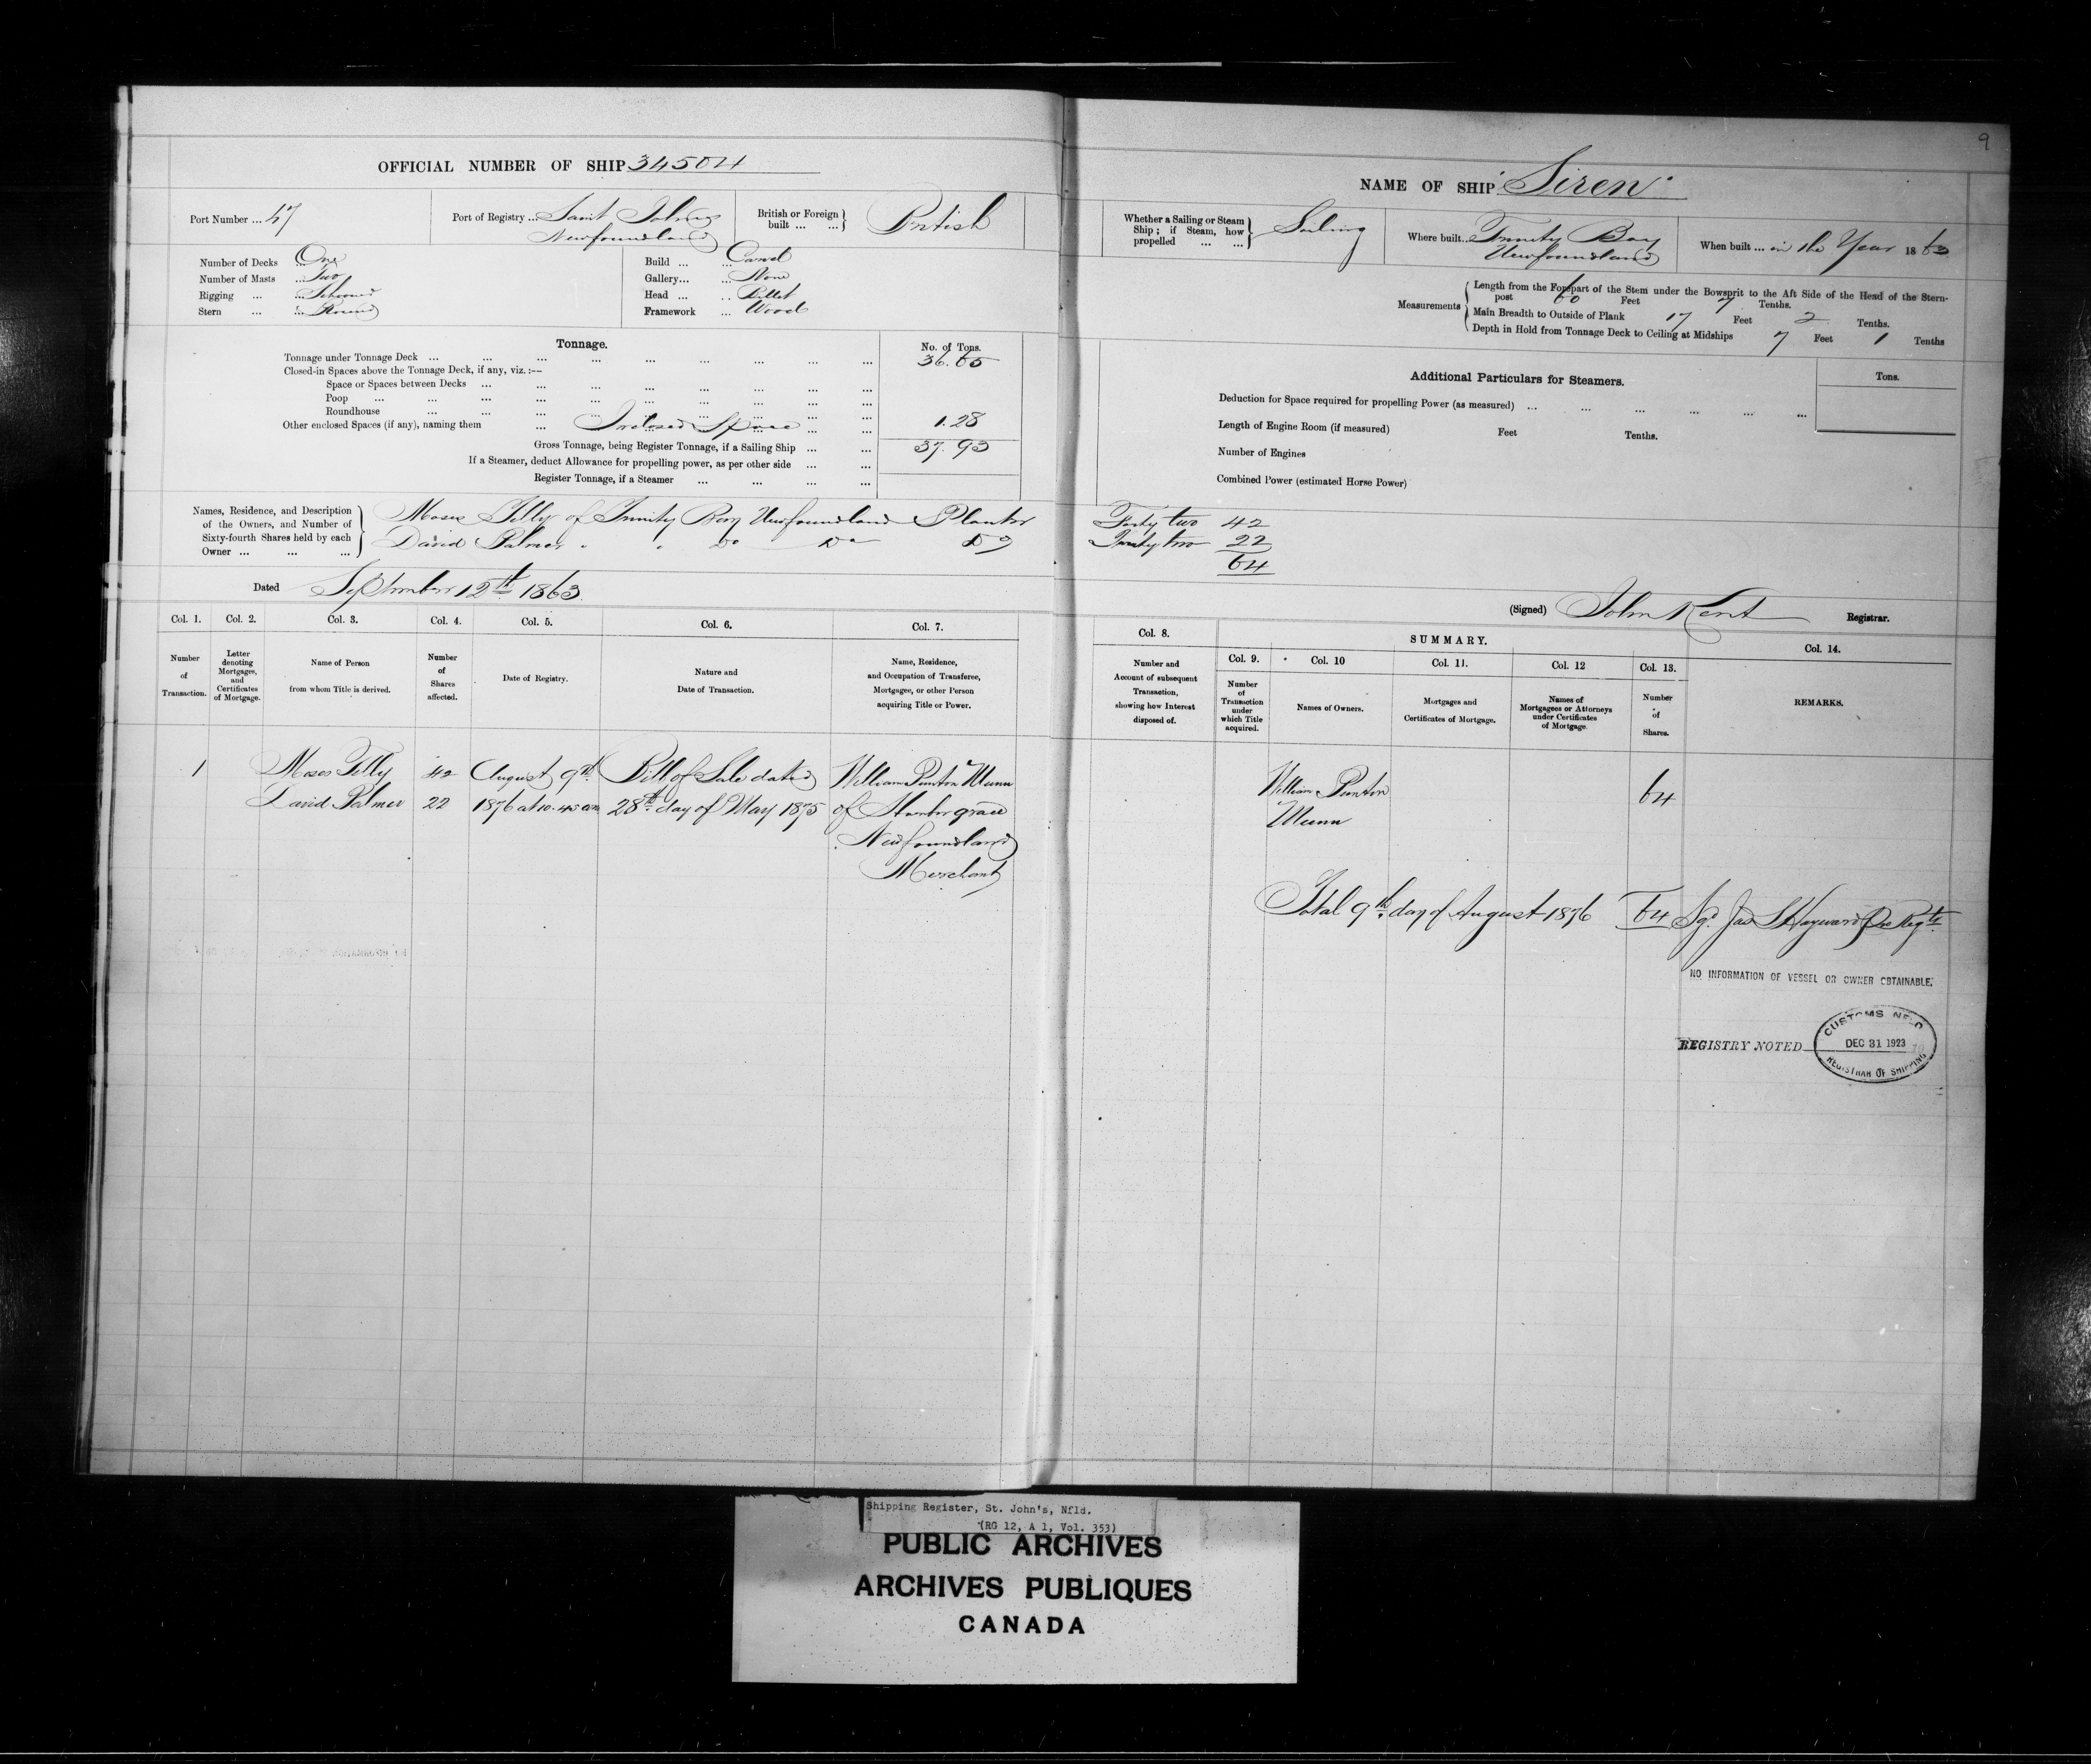 9
OFFICIAL NUMBER OF SHIP 34504
Port Number ... 47
Port of Registry ... Saint Johns
Newfoundland
British or Foreign built ... ... British
Number of Decks ... One
Number of Masts ... Two
Rigging ... ... Schooner
Stern ... ... Round
Build ... ... Carvel
Gallery... ... None
Head ... ... Billet
Framework ... Wood
Tonnage.
No. of Tons.
Tonnage under Tonnage Deck ... ... ... ... ... ... ... ... 36.65
Closed-in Spaces above the Tonnage Deck, if any, viz. :—
Space or Spaces between Decks ... ... ... ... ... ... ... ...
Poop ... ... ... ... ... ... ... ... ...
Roundhouse ... ... ... ... ... ... ... ...
Other enclosed Spaces (if any), naming them ... Inclosed Space ... ... 1.28
Gross Tonnage, being Register Tonnage, if a Sailing Ship ... ... 37.93
If a Steamer, deduct Allowance for propelling power, as per other side ... ...
Register Tonnage, if a Steamer ... ... ... ...
Names, Residence, and Description
of the Owners, and Number of
Sixty-fourth Shares held by each
Owner ... ... ...
Moses Tilly of Trinity Bay Newfoundland Planter
David Palmer " " Do Do Do
Dated September 12th 1863.
NAME OF SHIP "Siren"
Whether a Sailing or Steam
Ship ; if Steam, how
propelled ... ...
Sailing
Where built... Trinity Bay
Newfoundland
When built ... in the Year 1863
Measurements
Length from the Forepart of the Stem under the Bowsprit to the Aft Side of the Head of the Stern-
post 60 Feet 7 Tenths.
Main Breadth to Outside of Plank 17 Feet 2 Tenths.
Depth in Hold from Tonnage Deck to Ceiling at Midships 7 Feet 1 Tenths
Additional Particulars for Steamers.
Tons.
Deduction for Space required for propelling Power (as measured) ... ... ... ... ... ...
Length of Engine Room (if measured) Feet Tenths.
Number of Engines
Combined Power (estimated Horse Power)
Forty two 42
Twenty two 22
64
(Signed) John Kent Registrar.
Col. 1. Col. 2. Col. 3. Col. 4. Col. 5. Col. 6. Col. 7.
Number
of
Transaction.
Letter
denoting
Mortgages,
and
Certificates
of Mortgage.
Name of Person
from whom Title is derived.
Number
of
Shares
affected.
Date of Registry.
Nature and
Date of Transaction.
Name, Residence,
and Occupation of Transferee,
Mortgagee, or other Person
acquiring Title or Power.
1 Moses Tilly 42 August 9th Bill of Sale dated William Punton Munn
David Palmer 22 1876 at 10.45 am 28th day of May 1875 of Harbor grace
Newfoundland
Merchant
Col. 8. SUMMARY. Col. 14.
Col. 9. Col. 10 Col. 11. Col. 12 Col. 13.
Number and
Account of subsequent
Transaction,
showing how Interest
disposed of.
Number
of
Transaction
under
which Title
acquired.
Names of Owners.
Mortgages and
Certificates of Mortgage.
Names of
Mortgagees or Attorneys
under Certificates
of Mortgage.
Number
of
Shares.
REMARKS.
William Punton 64
Munn
Total 9th day of August 1876 64 Sgd Jas S Hayward
NO INFORMATION OF VESSEL OR OWNER OBTAINABLE.
REGISTRY NOTED
CUSTOMS NFLD
DEC 31 1923
REGISTRAR OF SHIPPING
Shipping Register, St. John's, Nfld.
(RG 12, A 1, Vol. 353)
PUBLIC ARCHIVES
ARCHIVES PUBLIQUES
CANADA